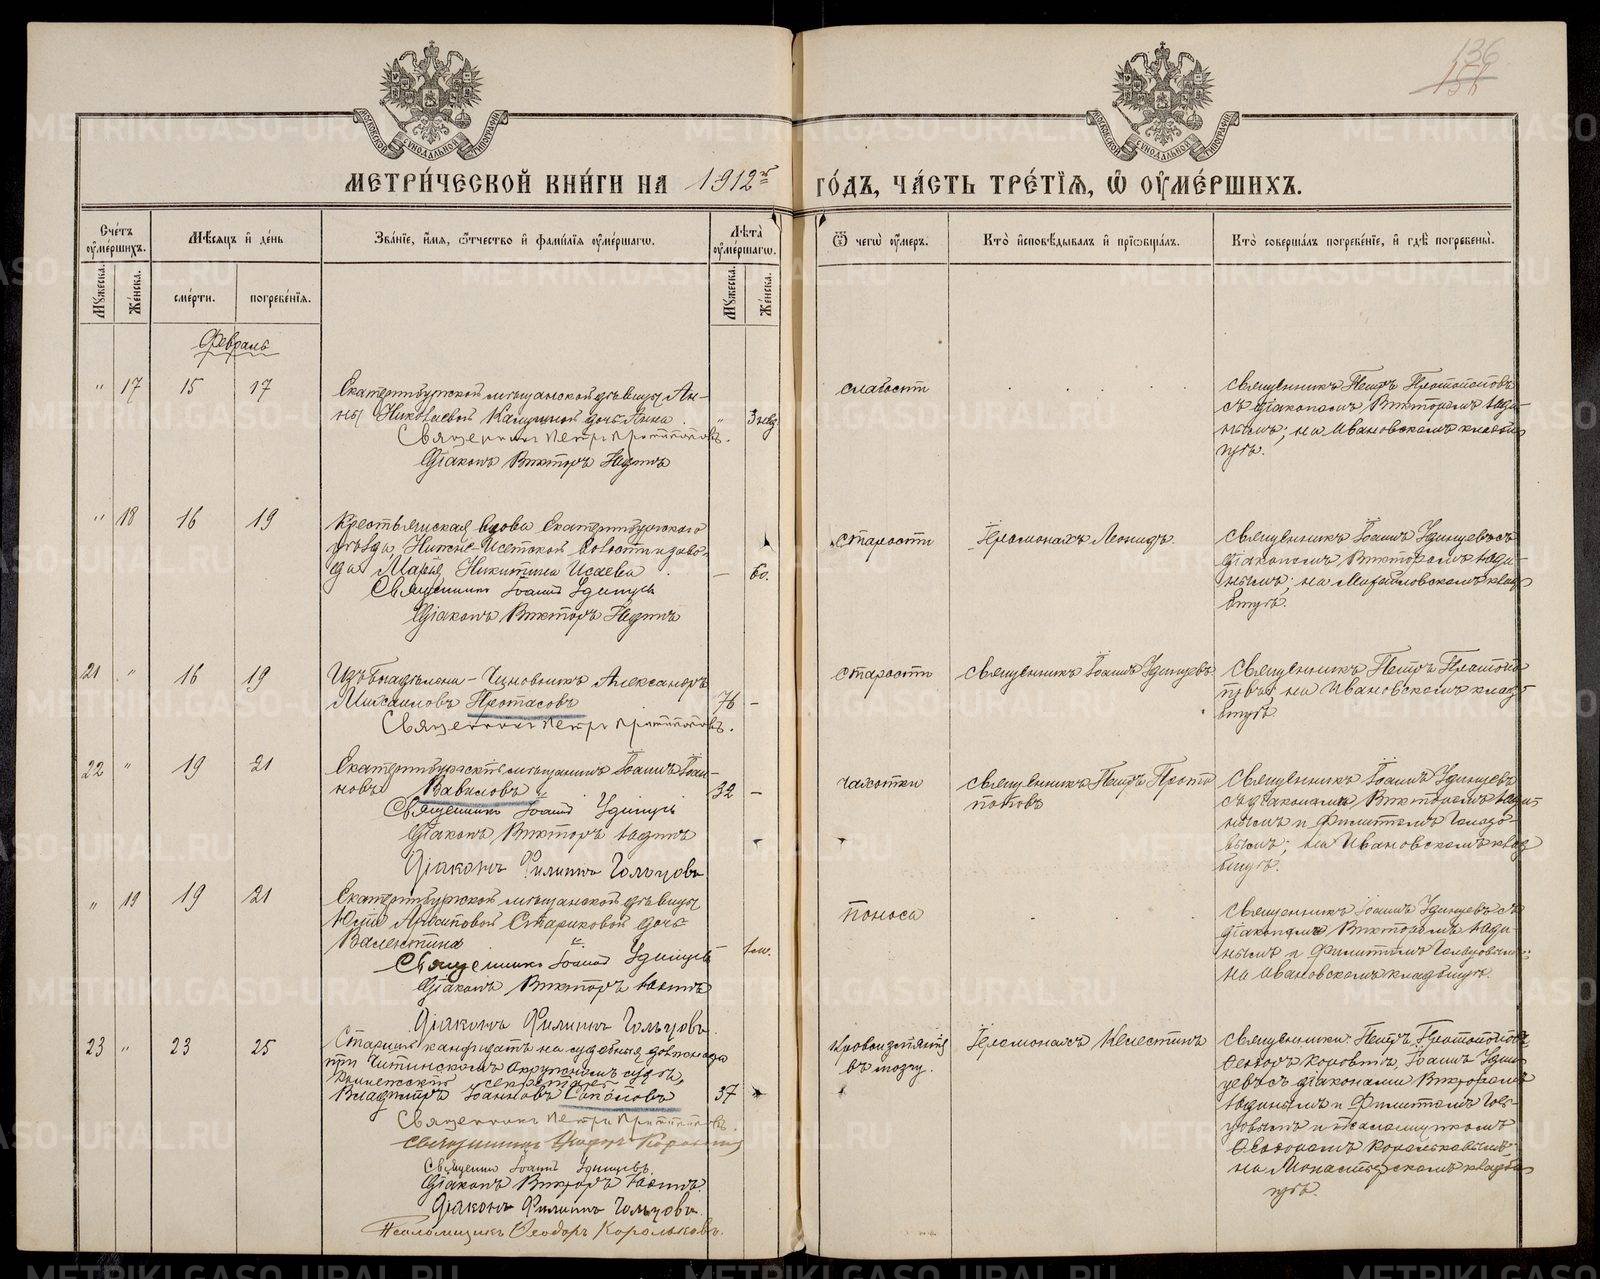 136
МЕТРИ́ЧЕСКОЙ КНИ́ГИ НА 1912й ГО́ДЪ, ЧА́СТЬ ТРЕ́ТІѦ, Ѡ ОУМЕ́РШИХЪ.
Сче́тъ оумершихъ.
Мѣсяцъ и де́нь
Зва́ніе, и́мя, о́тчество и фами́лія оуме́ршагѡ.
Лѣта̀ оуме́ршагѡ.
Ѿ чегѡ̀ оу́меръ.
Кто̀ исповѣ́дывалъ и пріобща́лъ.
Кто̀ соверша́лъ погребе́ніе, и гдѣ̀ погребены̀.
Мꙋжеска.
Же́нска.
сме́рти.
погребе́нія.
Мꙋжеска.
Же́нска.
Февраль
" 17 15 17
Екатеринбургской мѣщанской дѣвицы Ан-
ны Николаевой дочь Анна " 3 нед.
Священникъ Петръ Протопоповъ.
Діаконъ Викторъ Юдинъ
слабости
Священникъ Петръ Протопоповъ
съ діакономъ Викторомъ Юди-
нымъ; на Ивановскомъ кладби-
щѣ.
" 18 16 19
Крестьянская вдова Екатеринбургскаго
уѣзда, Нижне-Исетской волости и заво-
да Марья Никитина Исаева — 60.
Священникъ Іоаннъ Удинцевъ
Діаконъ Викторъ Юдинъ
старости
Іеромонахъ Леонидъ.
Священникъ Іоаннъ Удинцевъ съ
діакономъ Викторомъ Юди-
нымъ; на Михайловскомъ клад-
бищѣ.
21 " 16 19
Чиновникъ Александръ
Михаиловъ Протасовъ 76 —
Священникъ Петръ Протопоповъ.
старости
Священникъ Іоаннъ Удинцевъ
Священникъ Петръ Протопо-
повъ на Ивановскомъ клад-
бищѣ
22 " 19 21
Екатеринбургскій мѣщанинъ Іоаннъ Іоан-
новъ Вавиловъ 32 —
Священникъ Іоаннъ Удинцевъ
Діаконъ Викторъ Юдинъ
Діаконъ Филиппъ Гольцовъ
чахотки
Священникъ Петръ Прото-
поповъ
Священникъ Іоаннъ Удинцевъ
съ діаконами Викторомъ Юди-
нымъ и Филиппомъ Гольцо-
вымъ; на Ивановскомъ клад-
бищѣ.
" 19 19 21
Екатеринбургской мѣщанской дѣвицы
Стариковой дочь
Валентина 1 м.
Священникъ Іоаннъ Удинцевъ
Діаконъ Викторъ Юдинъ
Діаконъ Филиппъ Гольцовъ
поноса
Священникъ Іоаннъ Удинцевъ съ
діаконами Викторомъ Юди-
нымъ и Филиппомъ Гольцовымъ;
на Ивановскомъ кладбищѣ.
23 " 23 25
Старшій кандидатъ на судебныя должности
при Читинскомъ Окружномъ судѣ,
секретарь
Владиміръ Іоанновъ Сапожовъ 37
Священникъ Петръ Протопоповъ.
Священникъ Ѳеодоръ Коровинъ
Священникъ Іоаннъ Удинцевъ.
Діаконъ Викторъ Юдинъ.
Діаконъ Филиппъ Гольцовъ.
Псаломщикъ Ѳеодоръ Корольковъ.
Кровоизліянія
въ мозгу.
Іеромонахъ Келестинъ
Священники Петръ Протопоповъ,
Ѳеодоръ Коровинъ, Іоаннъ Удин-
цевъ съ діаконами Викторомъ
Юдинымъ и Филиппомъ Голь-
цовымъ и псаломщикомъ
Ѳеодоромъ Корольковымъ;
на Монастырскомъ кладби-
щѣ.
METRIKI.GASO-URAL.RU